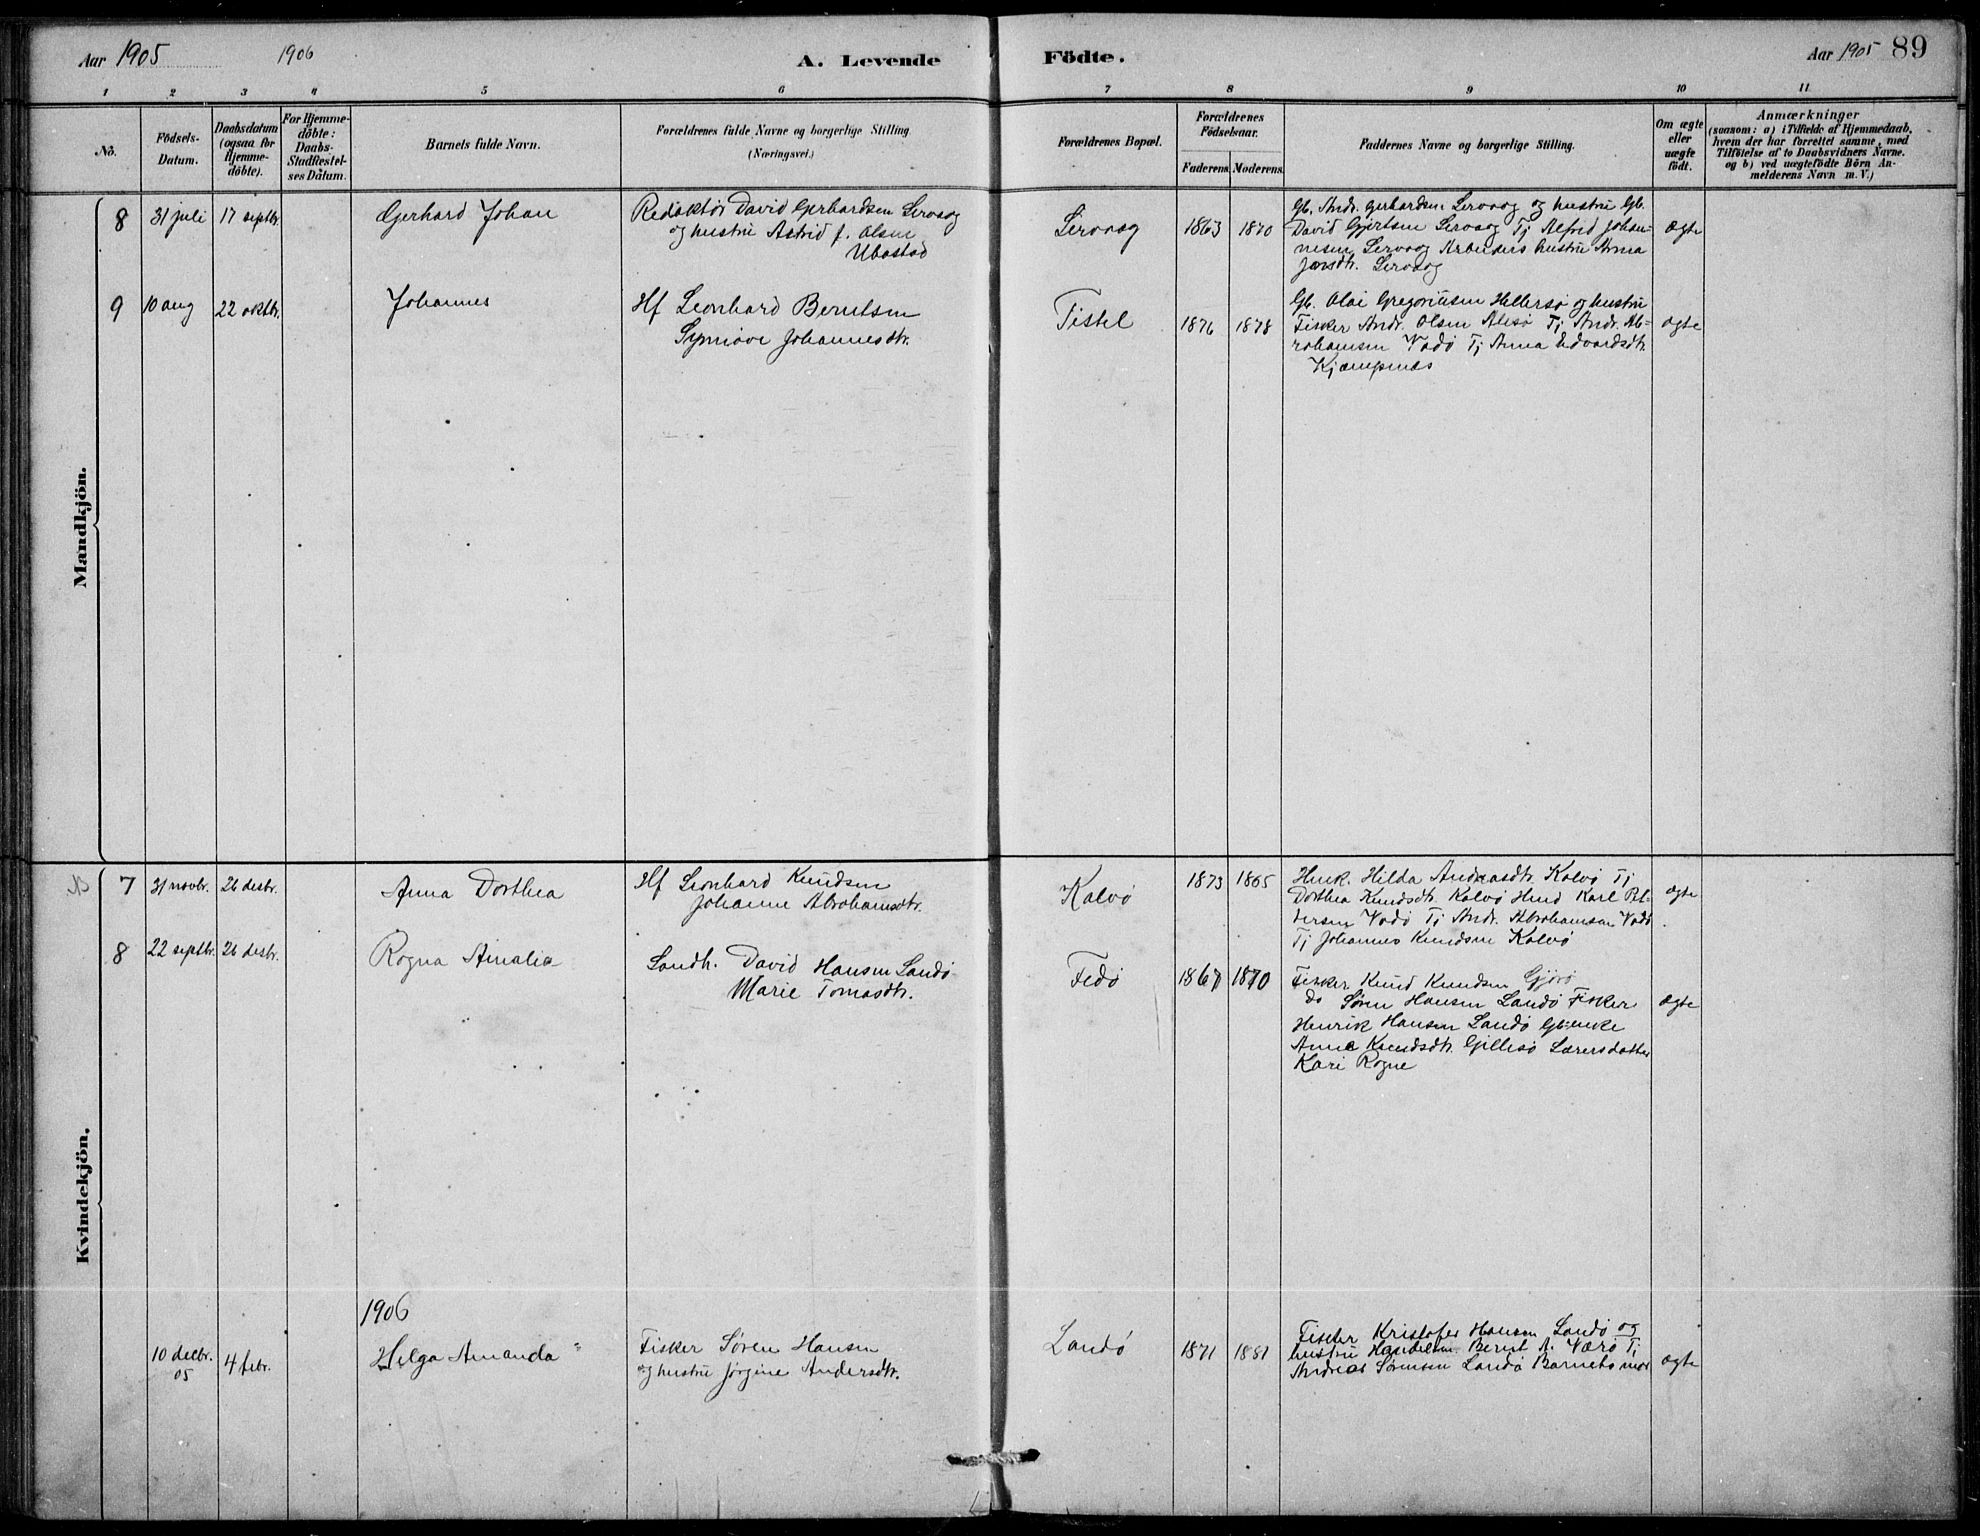 Aar 1905 1906 A. Levende Födte. Aar 1905 89
1 2 3 4 5 6 7 8 9 10 11
No.
Födsels-
Datum.
Daabsdatum
(ogsaa for
Hjemme-
döbte).
For Hjemme-
döbte:
Daabs-
Stadfæstel-
ses Datum.
Barnets fulde Navn.
Forældrenes fulde Navne og borgerlige Stilling
(Næringsvei.)
Forældrenes Bopæl.
Forældrenes
Födselsaar.
Faderens. Moderens.
Faddernes Navne og borgerlige Stilling.
Om ægte
eller
uægte
födt.
Anmærkninger
(saasom: a) i Tilfælde af Hjemmedaab,
hvem der har forrettet samme, med
Tilföielse af to Daabsvidners Navne.
og b) ved uægtefödte Börn An-
melderens Navn m. V.)
Mandkjön.
8 31 juli 17 septbr. Gerhard Johan
Redaktør David Gerhardsen Servaag
og hustru Astrid f. Olsen
Ubostad
Servaag 1863 1870
Gb. Andr. Gerhardsen Servaag og hustru Gb.
David Gjertsen Servaag Tj Alfred Johan-
nesen Servaag Arbeiders hustru Anna
Jansdtr. Servaag
Ægte
9 10 aug 22 oktbr. Johannes
Hf Leonhard Berntsen
Synnøve Johannesdtr.
Tistel 1876 1878
Gb. Olai Gregoriusen Hillersø og hustru
Fisker Andr. Olsen Alesø Tj Andr. Ab-
rahamsen Vadø Tj Anna Edvardsdtr.
Kjæmpenæs
ægte
Kvindekjön.
7 31 novbr. 26 desbr. Anna Dorthea
Hf Leonhard Knudsen
Johanne Abrahamsdtr.
Kalvø 1873 1865
Hilda Andreasdtr. Kalvø Tj
Dorthea Knudsdtr. Kalvø Karl Pet-
tersen Vadø Tj Andr. Abrahamsen Vadø
Tj Johannes Knudsen Kalvø
ægte
8 22 septbr. 26 desbr. Ragna Amalia
Landh. David Hansen Landø
Marie Tomasdtr.
Fedø 1867 1870
Fisker Knud Knudsen Gjørø
do Søren Hansen Landø Fisker
Henrik Hansen Landø Gb.enke
Anne Knudsdtr. Gillesø Lærersdatter
Kari Rogne
Ægte
1906
10 decbr.
05
4 febr. Helga Amanda
Fisker Søren Hansen
og hustru Jørgine Andersdtr.
Landø 1871 1881
Fisker Kristofer Hansen Landø og
hustru Bernt A. Værø Tj
Andreas Sørensen Landø Barnets mor
ægte